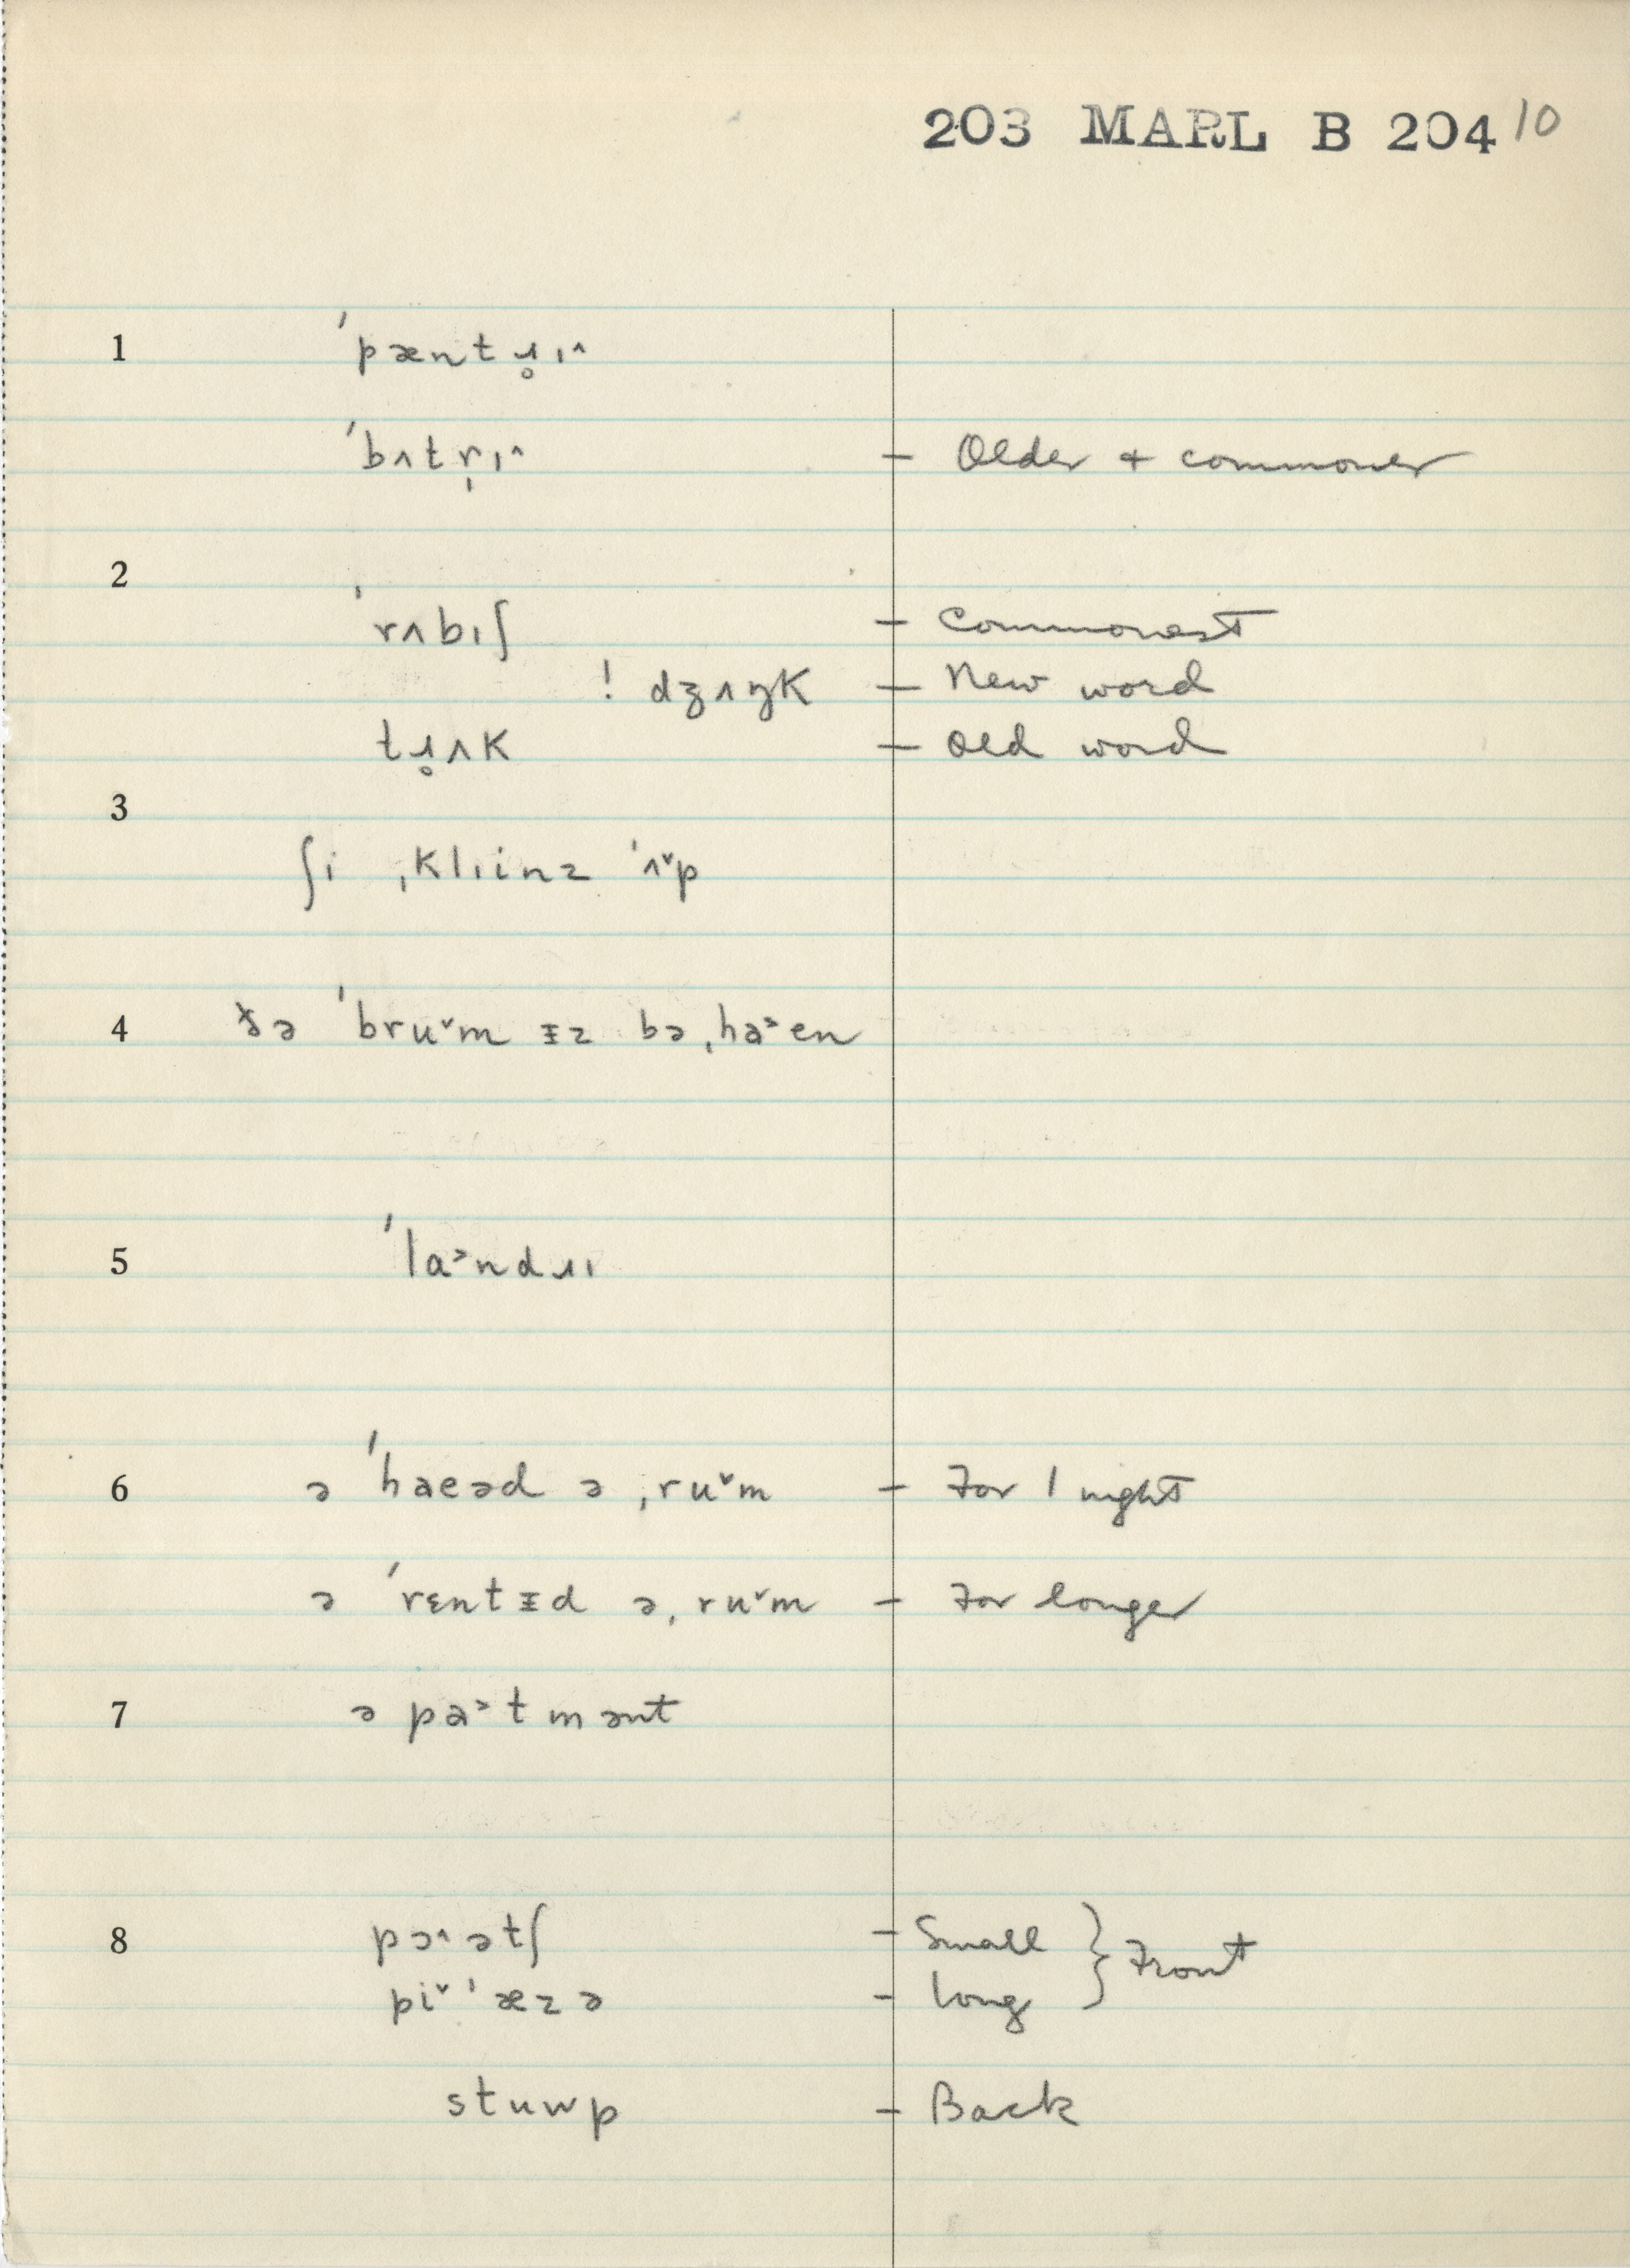 203 MARL B 204 10
1 ˈpæntɹ̥ɪ˄
ˈbʌtr̩ɪ˄ – Older + commoner
2
ˈrʌbɪʃ – Commonest
! dʒʌŋk – New word
tɹ̥ʌk – Old word
3
ʃi ˌklɪinz ˈʌ˅p
4 ðə ˈbru˅m ᵻz bəˌha˃en
5 ˈla˃ndɹɪ
6 ə ˈhaeəd ə ˌru˅m – For 1 night
ə ˈrɛntᵻd ə ˌru˅m – For longer
7 ə pa˃tmənt
8 pɔ˄ətʃ – Small } Front
pi˅ˈæzə – Long
stuwp – Back